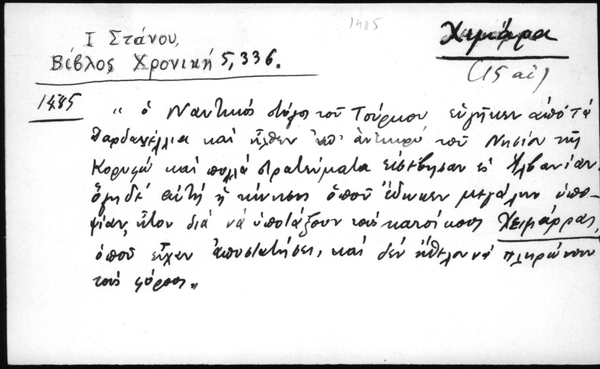 1485
Ι Στάνου,
Βίβλος Χρονική 5, 336.
Χιμάρρα
(15 αἰ)
1485
„ ὁ Ναυτικός στόλος τοῦ Τούρκου εὐγῆκεν ἀπό τά
Δαρδανέλλια καί ἦλθεν ἀπ' ἀντικρύ τοῦ Νησίου τῆς
Κορυφῶ καί πολλά στρατεύματα εἰσέβησαν εἰς Ἀλβανίαν.
αὐτή ἡ κίνησις ὁποῦ ἔδωκεν μεγάλην ὑπο-
ψίαν, ἦτον διά νά ὑποτάξουν τούς κατοίκους Χειμάρρας,
ὁποῦ εἶχαν ἀποστατήσει, καί δέν ἤθελον νά πληρώνουν
τούς φόρους „